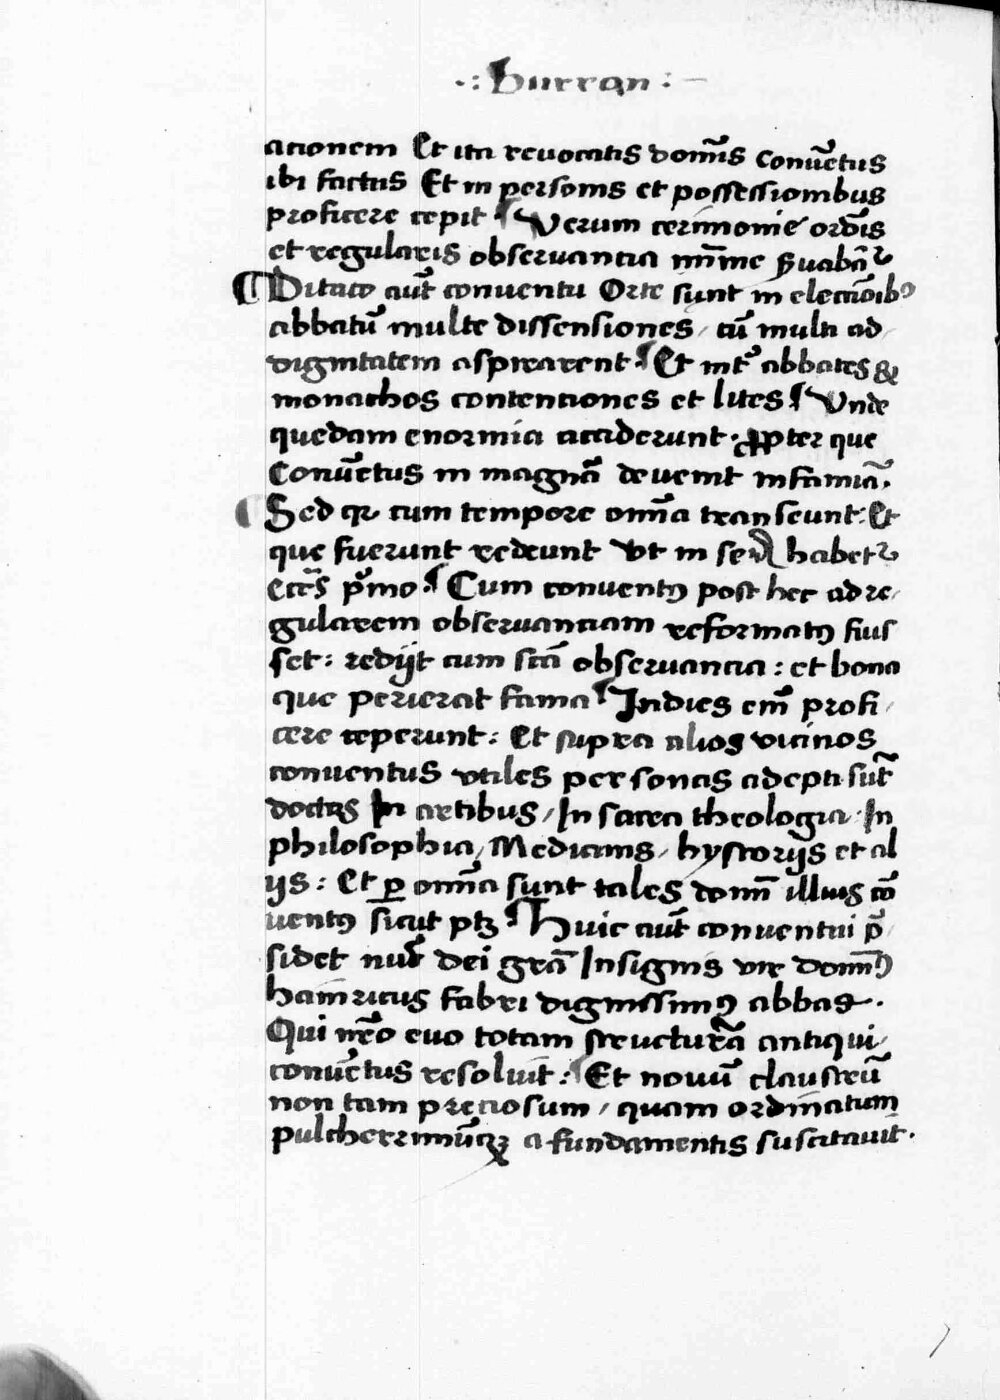 ·: burran :
acionem Et ita reuocatis domīs Conuētus
ibi factus Et in personis et possessionibus
proficere cepit ¶ Verum cerimonie ordīs
et regularis obseruancia mīme ẜuabāt᷑
¶ Ditato aūt conuentu Orte sunt in elecciōibꝰ
abbatū multe dissensiones / cū multi ad-
dignitatem aspirarent ¶ Et int᷑ abbates &
monachos contenciones et lites ¶ Vnde
quedam enormia acciderunt · ꝓpter que
Conuētus in magnā deuenit infamiā.
¶ Sed qꝛ cum tempore om̄ia transeunt: Et
que fuerunt redeunt Vt in habet᷑
eccēs p̄mo ¶ Cum conuentꝰ post hec ad re-
gularem obseruanciam reformatꝰ fuis
set: redijt cum scā obseruancia: et bona
que perierat fama ¶ Indies em̄ profi-
cere ceperunt: Et supra alios vicinos
conuentus vtiles personas adepti sūt
doctas In artibus / In sacra theologia · In
philosophia / Medicinis / hystorijs et al
ijs: Et ꝑ om̄ia sunt tales domī illius cō
uentꝰ sicut ptꝫ ¶ Huic aūt conuentui p̄-
sidet nūc dei grā Insignis vir domīꝰ
hainricus fabri dignissimꝰ abbas.
Qui nr̄o euo totam structurā antiqui
conuētus resoluit: ¶ Et nouū claustrū
non tam preciosum / quam ordinatum
pulcherrimūqꝫ a fundamentis suscitauit.